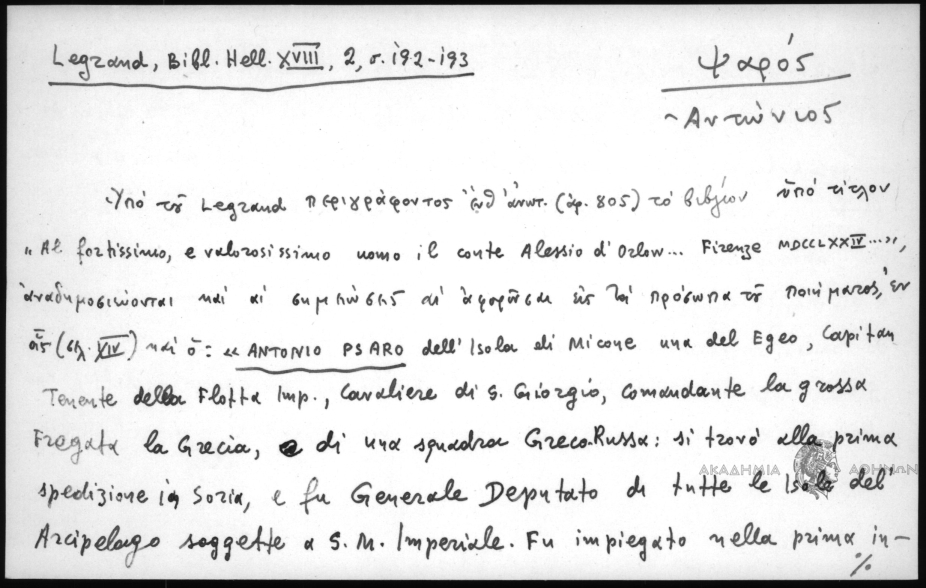 Legrand, Bibl. Hell. XVIII, 2, σ. 192-193
Ψαρός
~ Αντώνιος
Ὑπό τοῦ Legrand περιγράφοντος ἐνθ' ἀνωτ. (ἀρ. 805) τό βιβλίον ὑπό τίτλον
"Al fortissimo, e valorosissimo uomo il conte Alessio d'Orlow... Firenze MDCCLXXIV...",
ἀναδημοσιεύονται καί αἱ σημειώσεις αἱ ἀφορῶσαι εἰς τά πρόσωπα τοῦ ποιήματος, ἐν
αἷς (σελ. XIV) καί ὁ: « ANTONIO PSARO dell'Isola di Micone una del Egeo, Capitan
Tenente della Flotta Imp., Cavaliere di S. Giorgio, Comandante la grossa
Fregata la Grecia, e di una squadra Greco-Russa: si trovò alla prima
spedizione in Soria, e fu Generale Deputato di tutte le Isole del
Arcipelago soggette a S. M. Imperiale. Fu impiegato nella prima in-
%
ΑΚΑΔΗΜΙΑ ΑΘΗΝΩΝ